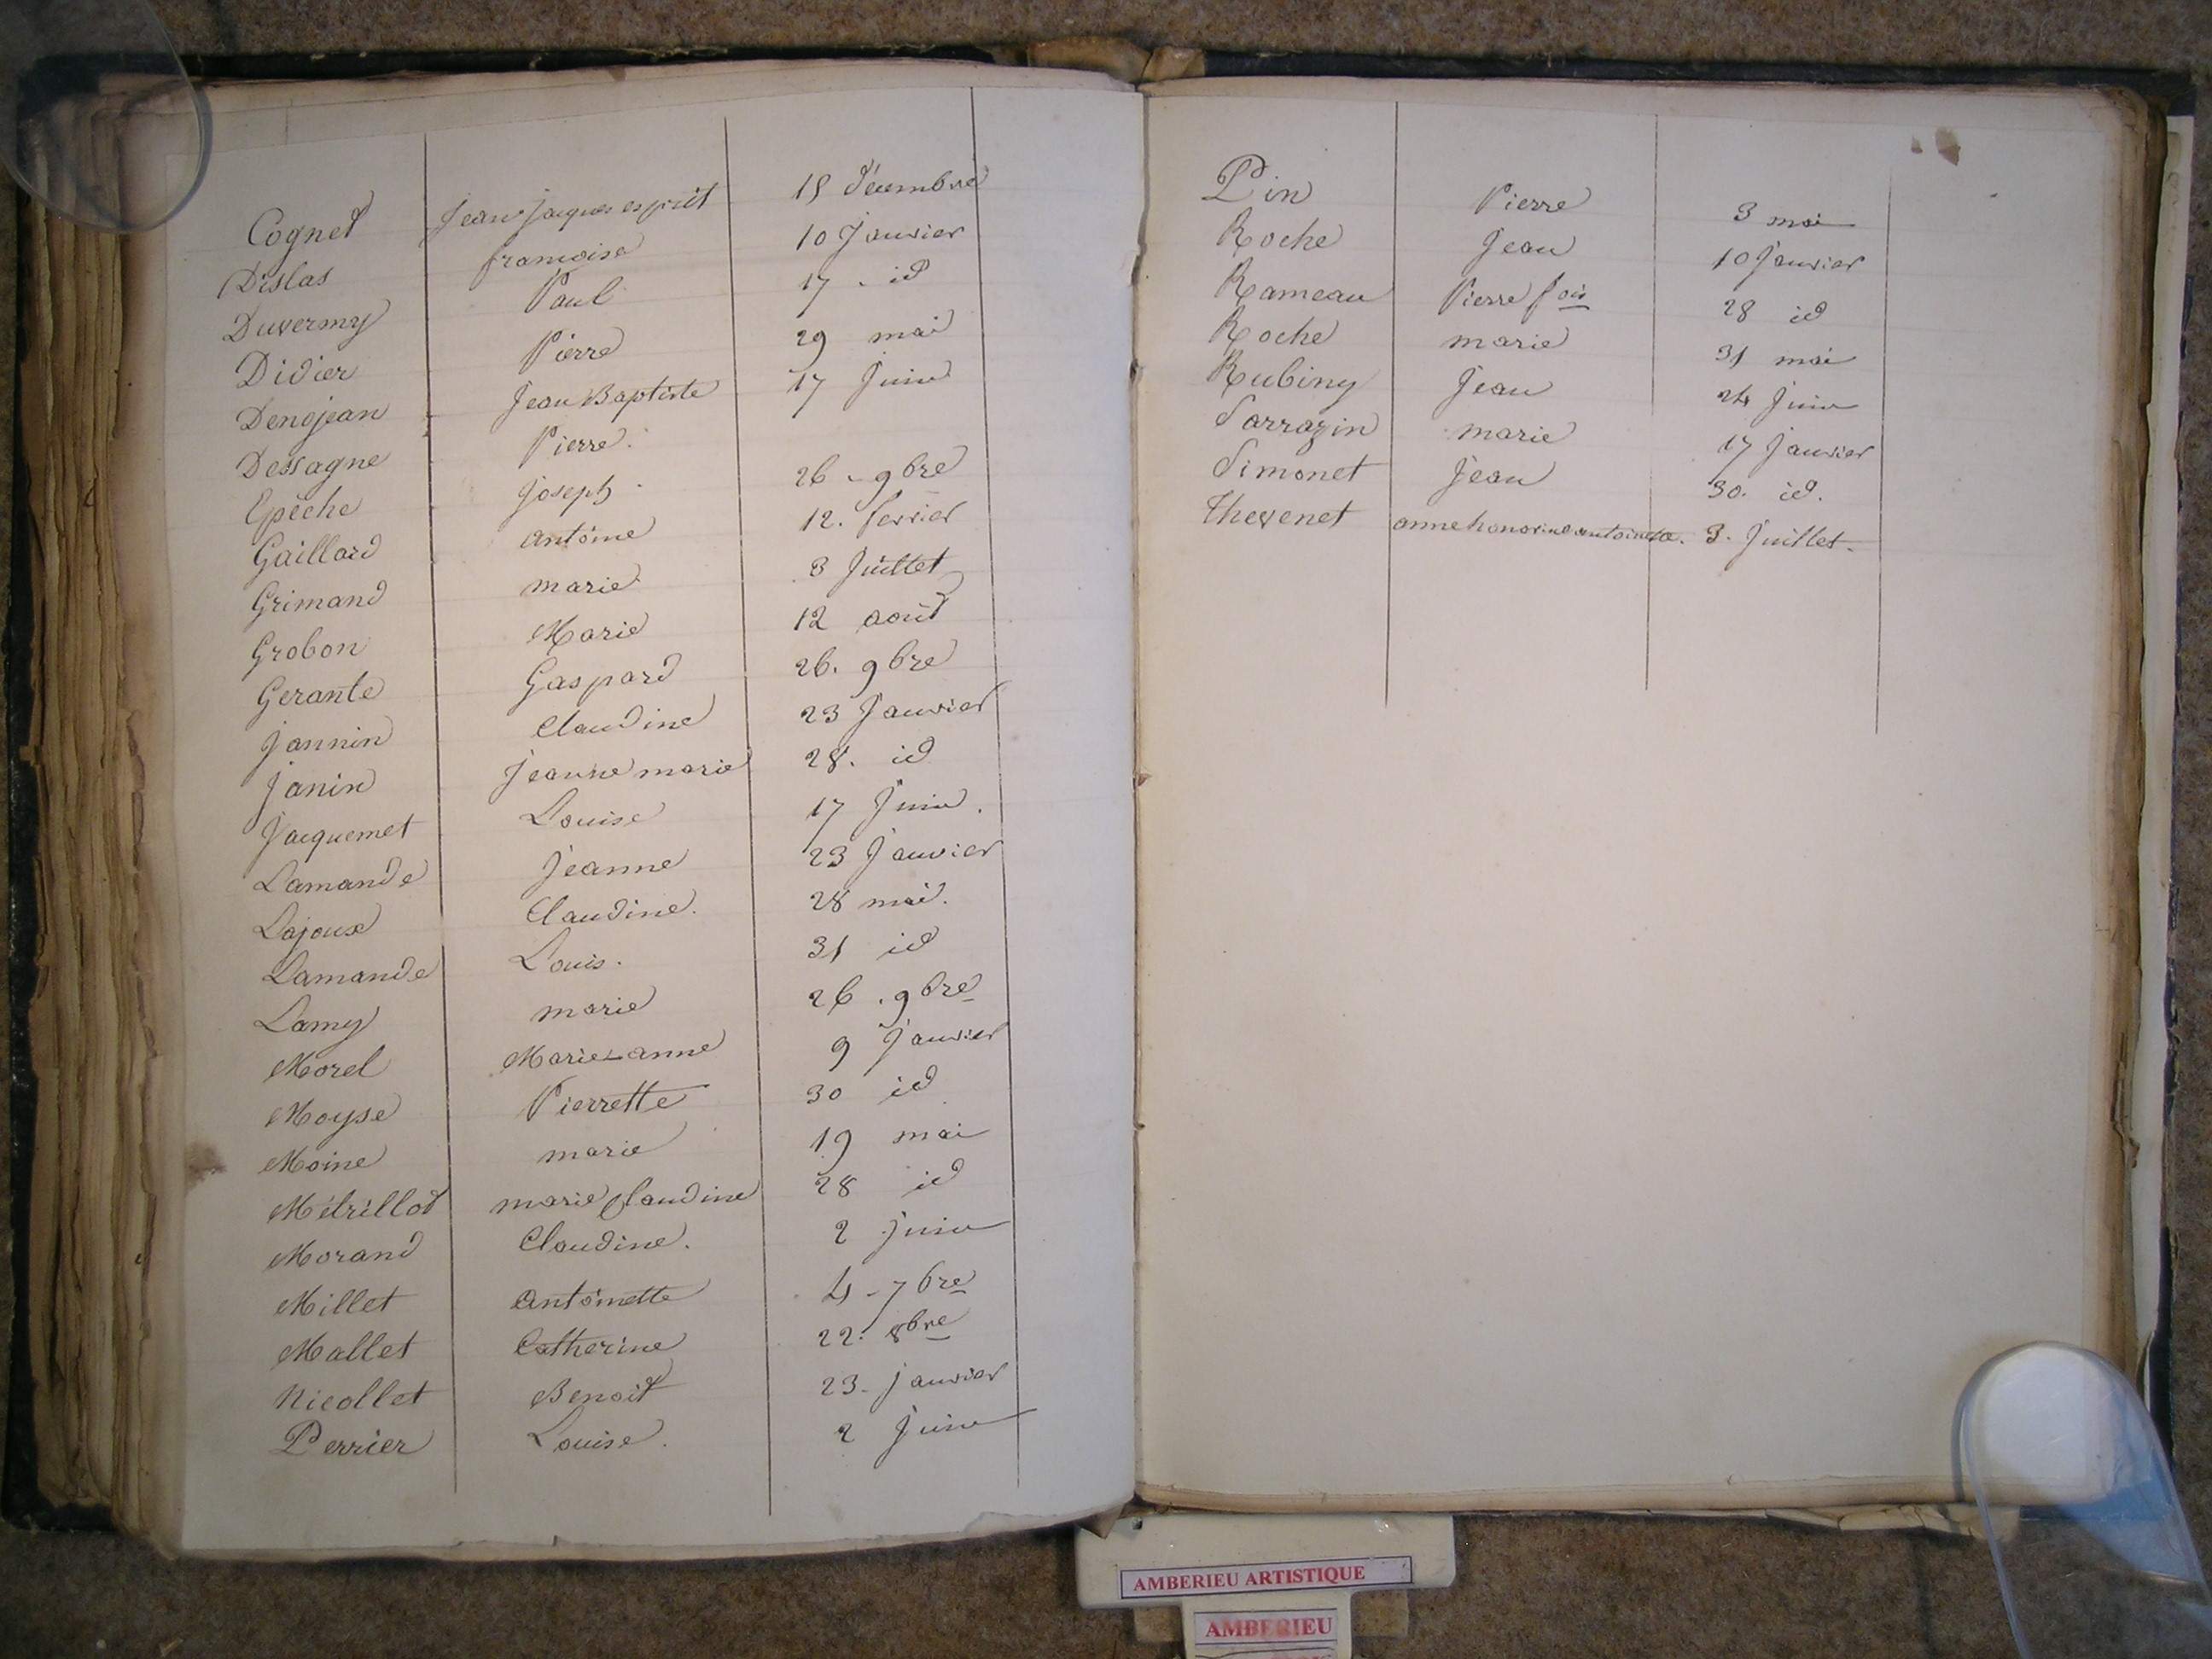 Cognet Jean Jacques esprit 18 décembre
Dislas francoise 10 Janvier
Duvermy Paul 17 . id
Didier Pierre 29 mai
Denojean Jean Baptiste 17 Juin
Dessagne Pierre.
Epêche Joseph . 26 . 9bre
Gaillard antoine 12. fevrier
Grimand marie 3 Juillet
Grobon Marie 12 août
Gerante Gaspard 26. 9bre
Jannin Claudine 23 Janvier
Janin Jeanne marie 28. id
Jacquemet Louise 17 Juin.
Lamande Jeanne 23 Janvier
Lajoux Claudine. 28 mai.
Lamande Louis. 31 id
Lamy marie 26 . 9bre
Morel Marie-anne 9 Janvier
Moyse Pierrette 30 id
Moine marie 19 mai
Métrillot marie Claudine 28 id
Morand Claudine. 2 juin
Millet Antoinette 4 - 7bre
Mallet Catherine 22. 8bre
Nicollet Benoit 23. janvier
Perrier Louise. 2 Juin
Pin Pierre 3 mai
Roche Jean 10 Janvier
Rameau Pierre fois 28 id
Roche marie 31 mai
Rubiny Jean 24 Juin
Sarrazin marie 17 Janvier
Simonet Jean 30. id.
Thevenet anne honorine antoinette. 3. Juillet.
AMBERIEU ARTISTIQUE
AMBERIEU